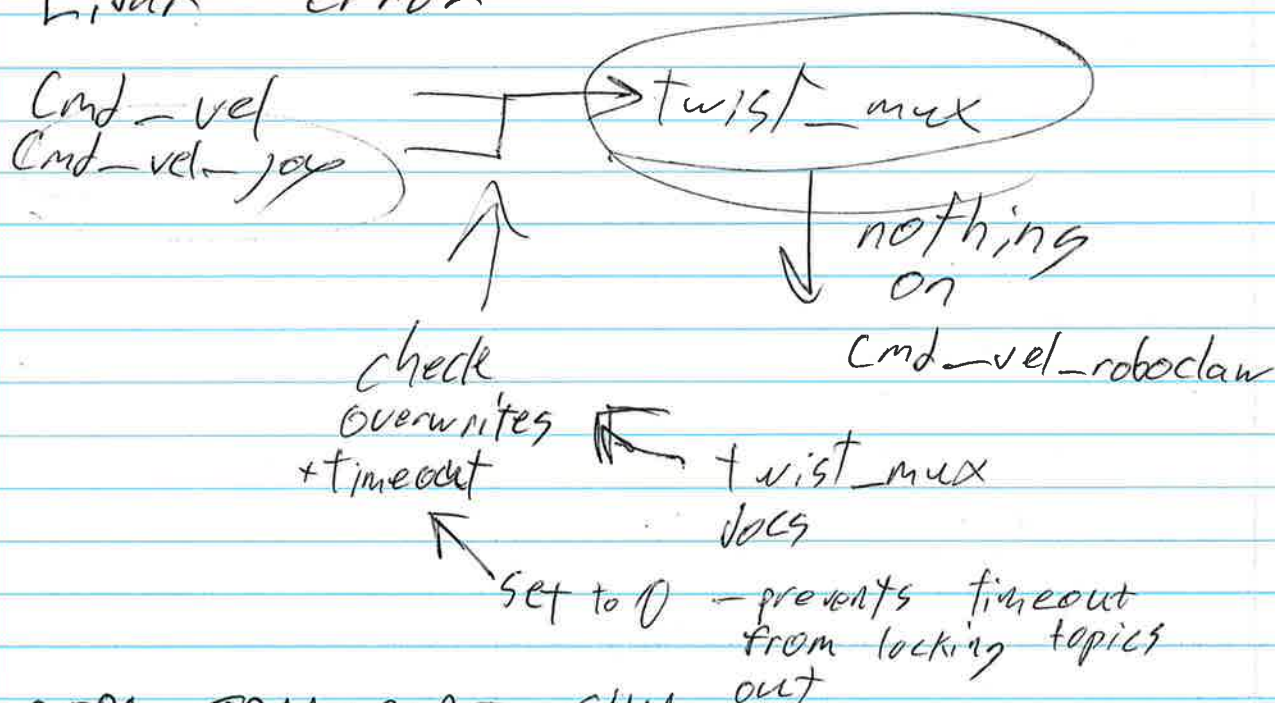 Cmd_vel
Cmd_vel_joy
twist_mux
nothing
on
Cmd_vel_roboclaw
check
overwrites
+timeout
twist_mux
docs
set to 0 - prevents timeout
from locking topics
out